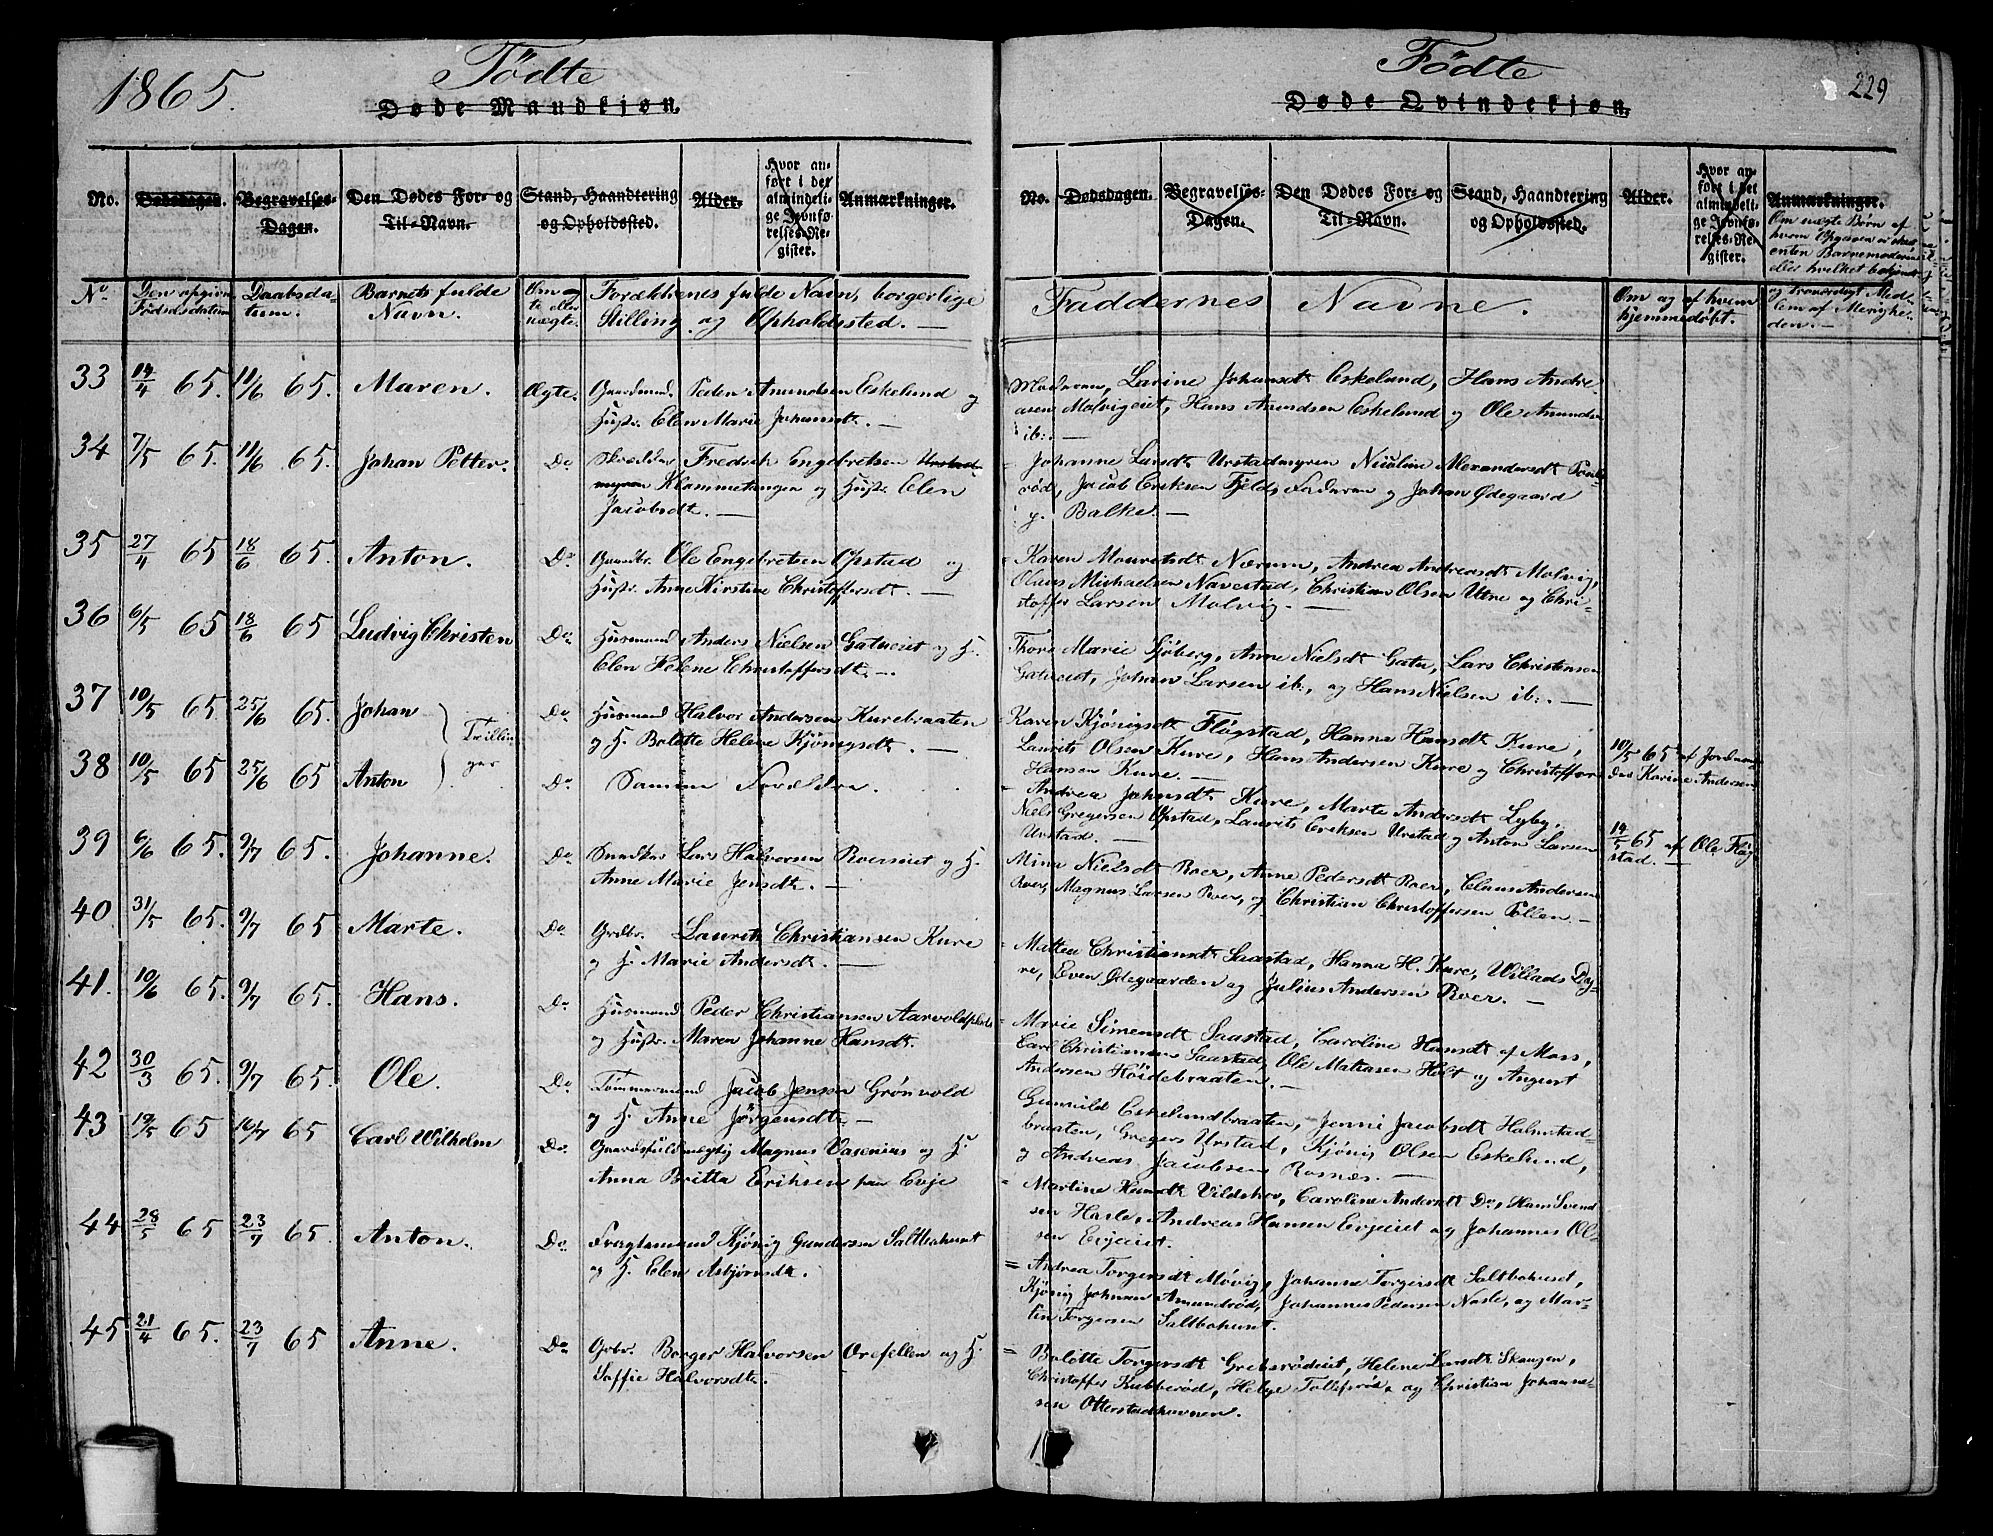 1865.
Födte
Døde Mandkjøn.
No.
Dødsdagen.
Begravelses-
Dagen.
Den Dødes For- og
Til-Navn.
Stand, Haandtering
og Opholdssted.
Alder.
Hvor an-
ført i det
almindeli-
ge Jevnfø-
relses-Re-
gister.
Anmærkninger.
No.
Den opgivne
Födselsdatum
Daabsda-
tum.
Barnets fulde
Navn.
Om æg-
te eller
uægte.
Forældrenes fulde Navn, borgerlige
Stilling og Opholdssted. —
33 14/4 65. 11/6 65. Maren. Ægte. Gaardmd. Peder Amundsen Eskelund og
Hustr. Elen Marie Johannsdt. —
34 7/5 65. 11/6 65. Johan Petter. Do Skrædder Fredrich Engebretsen Urstad-
myren Klommetangen og Hustr. Elen
Jacobsdt. —
35 27/4 65 18/6 65. Anton. Do Gaardbr. Ole Engebretsen Opstad og
Hustr. Anne Kirstine Christoffersdt. —
36 6/5 65 18/6 65 Ludvig Christen Do. Husmand Anders Nielsen Gatueiet og H.
Elen Helene Christoffersdt. —
37 10/5 65. 25/6 65. Johan Do. Husmand Halvor Andersen Kurebraaten
og H. Bolette Helene Kjönigsdt. —
Tvillin-
ger
38 10/5 65 25/6 65 Anton Do. Samme Forældre.
39 6/6 65. 9/7 65. Johanne. Do Lars Halvorsen Roerseiet og H.
Anne Marie Jensdt. —
40 31/5 65. 9/7 65 Marte. Do Grdbr. Laurits Christiansen Kure
og H. Marie Andersdt. —
41. 10/6 65. 9/7 65. Hans. Do Husmand Peder Christiansen Aarvoldplads
og Hustr. Maren Johanne Hansdt.
42 30/3 65. 9/7 65. Ole. Do Tömmermand Jacob Jensen Grönvold
og H. Anne Jörgensdt. —
43 19/5 65 16/7 65 Carl Wilhelm Do. Gaardsfuldmægtig Magnus Vasenius og H.
Anna Britta Eriksen paa Evje
44 28/5 65 23/7 65. Anton. Do. Fragtemand Kjönig Gundersen Saltbohuset
og H. Elen Asbjörnsdt.
45 21/4 65. 23/7 65 Anne. Do Grbr. Borger Halvorsen Orefellen og H.
Soffie Halvorsdt.
Födte
229
Døde Qvindekjøn.
No.
Dødsdagen.
Begravelses-
Dagen.
Den Dødes For- og
Til-Navn.
Stand, Haandtering
og Opholdssted.
Alder.
Hvor an-
ført i det
almindeli-
ge Jevnfø-
relses-Re-
gister.
Anmærkninger.
Om uægte Børn af
hvem Opgaven er skeet
enten Barnemoderen
eller hvilket bekjendt
og troværdigt Med-
lem af Menighe-
den. —
Faddernes Navne.
Om og af hvem
hjemmedöbt.
Moderen, Lovine Johansdt Eskelund, Hans Andre
asen Molvigeiet, Hans Amundsen Eskelund og Ole Amundsen
ib: —
Johanne Larsdt Urstadmyren Nicoline Alexandersdt
röd, Jacob Eriksen Fjeld, Faderen og Johan Ödegaard
p. Balke. —
Karen Mouretsdt Nærum, Andrea Andreasdt Molvig,
Olaus Michaelsen Navestad, Christian Olsen Utne og Chri-
stoffer Larsen Molvig. —
Thora Marie Sjöberg, Anne Nielsdt Gatu, Lars Christensen
Gatueiet, Johan Larsen ib:, og Hans Nielsen ib:. —
Karen Kjönigsdt Flögstad, Hanna Hansdt Kure,
Laurits Olsen Kure, Hans Andersen Kure og Christoffer
Hansen Kure. —
10/5 65 af Jordmo-
der Karine Andersen
Andrea Johnsdt Kure, Marte Andersdt Lyby,
Niels Gregersen Opstad, Laurits Eriksen Urstad og Anton Larsen
Urstad. —
14/5 65 af Ole Flög-
stad. —
Mina Nielsdt Roer, Anne Pedersdt Roer, Claus Andersen
Roer, Magnus Larsen Roer, og Christian Christoffersen Pollen. —
Mattea Christiansdt Saastad, Hanna H. Kure, Willads Dy-
re, Even Ödegaarden og Julius Andersen Roer. —
Marie Simensdt Saastad, Caroline Hansdt af Moss,
Carl Christiansen Saastad, Ole Mathisen Holt og August
Andersen Höidebraaten. —
Gunnild Eskelundbraaten, Jenni Jacobsdt Halmstad-
braaten, Gregers Urstad, Kjönig Olsen Eskelund,
og Andreas Jacobsen Rosnæs. —
Martine Hansdt Vildskov, Caroline Andersdt Do, Hans Svend
sen Hasle, Andreas Hansen Evjeeiet og Johannes Ol-
sen Evjeeiet.
Andrea Torgersdt Movig, Johanne Torgersdt Saltbohuset,
Kjönig Johnsen Amundröd, Johannes Pedersen Nasle, og Mar-
tin Torgersen Saltbohuset.
Bolette Torgersdt Grebsrödeiet, Helene Larsdt Skaugen,
Christoffer Kubberöd, Helge Tollefsröd, og Christian Johanne-
sen Otterstadhavnen.